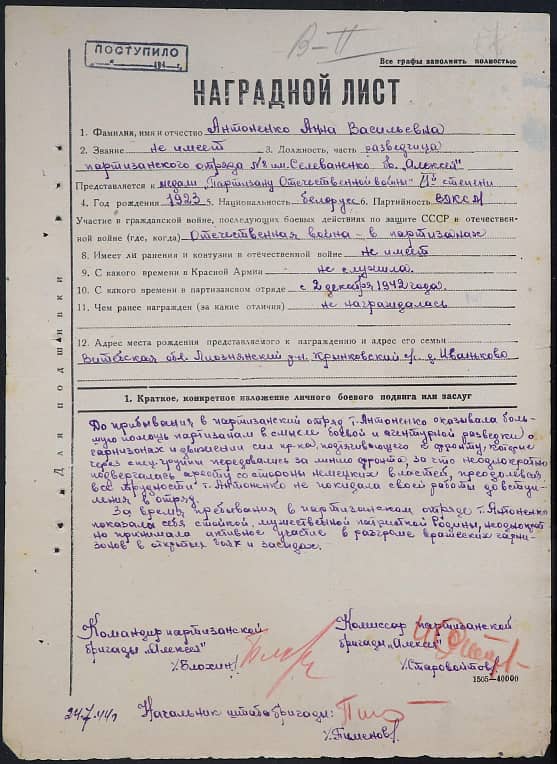 ПОСТУПИЛО
194 г.
В-II
Все графы заполнить полностью
НАГРАДНОЙ ЛИСТ
1. Фамилия, имя и отчество Антоненко Анна Васильевна
2. Звание не имеет 3. Должность, часть разведчица
партизанского отряда №8 им. Селеваненко бр. „Алексея"
Представляется к медали „Партизану Отечественной войны" IIй степени
4. Год рождения 1923 5. Национальность белорус 6. Партийность ВЛКСМ
Участие в гражданской войне, последующих боевых действиях по защите СССР и отечествен-
ной войне (где, когда) Отечественная война - в партизанах
8. Имеет ли ранения и контузии в отечественной войне не имеет
9. С какого времени в Красной Армии не служила.
10. С какого времени в партизанском отряде с 2 декабря 1942 года.
11. Чем ранее награжден (за какие отличия) не награждалась
12. Адрес места рождения представляемого к награждению и адрес его семьи
Витебская обл. Лиознянский р-н. Крынковский с/с. д. Иваньково
Для подшивки
1. Краткое, конкретное изложение личного боевого подвига или заслуг
До прибывания в партизанский отряд т. Антоненко оказывала боль-
шую помощь партизанам в смысле боевой и агентурной разведки о
гарнизонах и движении сил пр-ка, подтягивающего к фронту, которые
через спец. группы передовались за линию фронта за что неоднократно
подвергалась аресту со стороны немецких властей, преодолевая
все трудности т. Антоненко не покидала своей работы до вступ-
ления в отряд.
За время пребывания в партизанском отряде т. Антоненко
показала себя стойкой, мужественной патриоткой Родины, неоднократ-
но принимала активное участие в разгроме вражеских гарни-
зонов в открытых боях и засадах.
Командир партизанской
бригады „Алексея"
/Блохин/
Комиссар партизанской
бригады „Алексея"
/Старовойтов/
1505—40000
24.7.44г.
Начальник штаба бригады:
/Пименов/